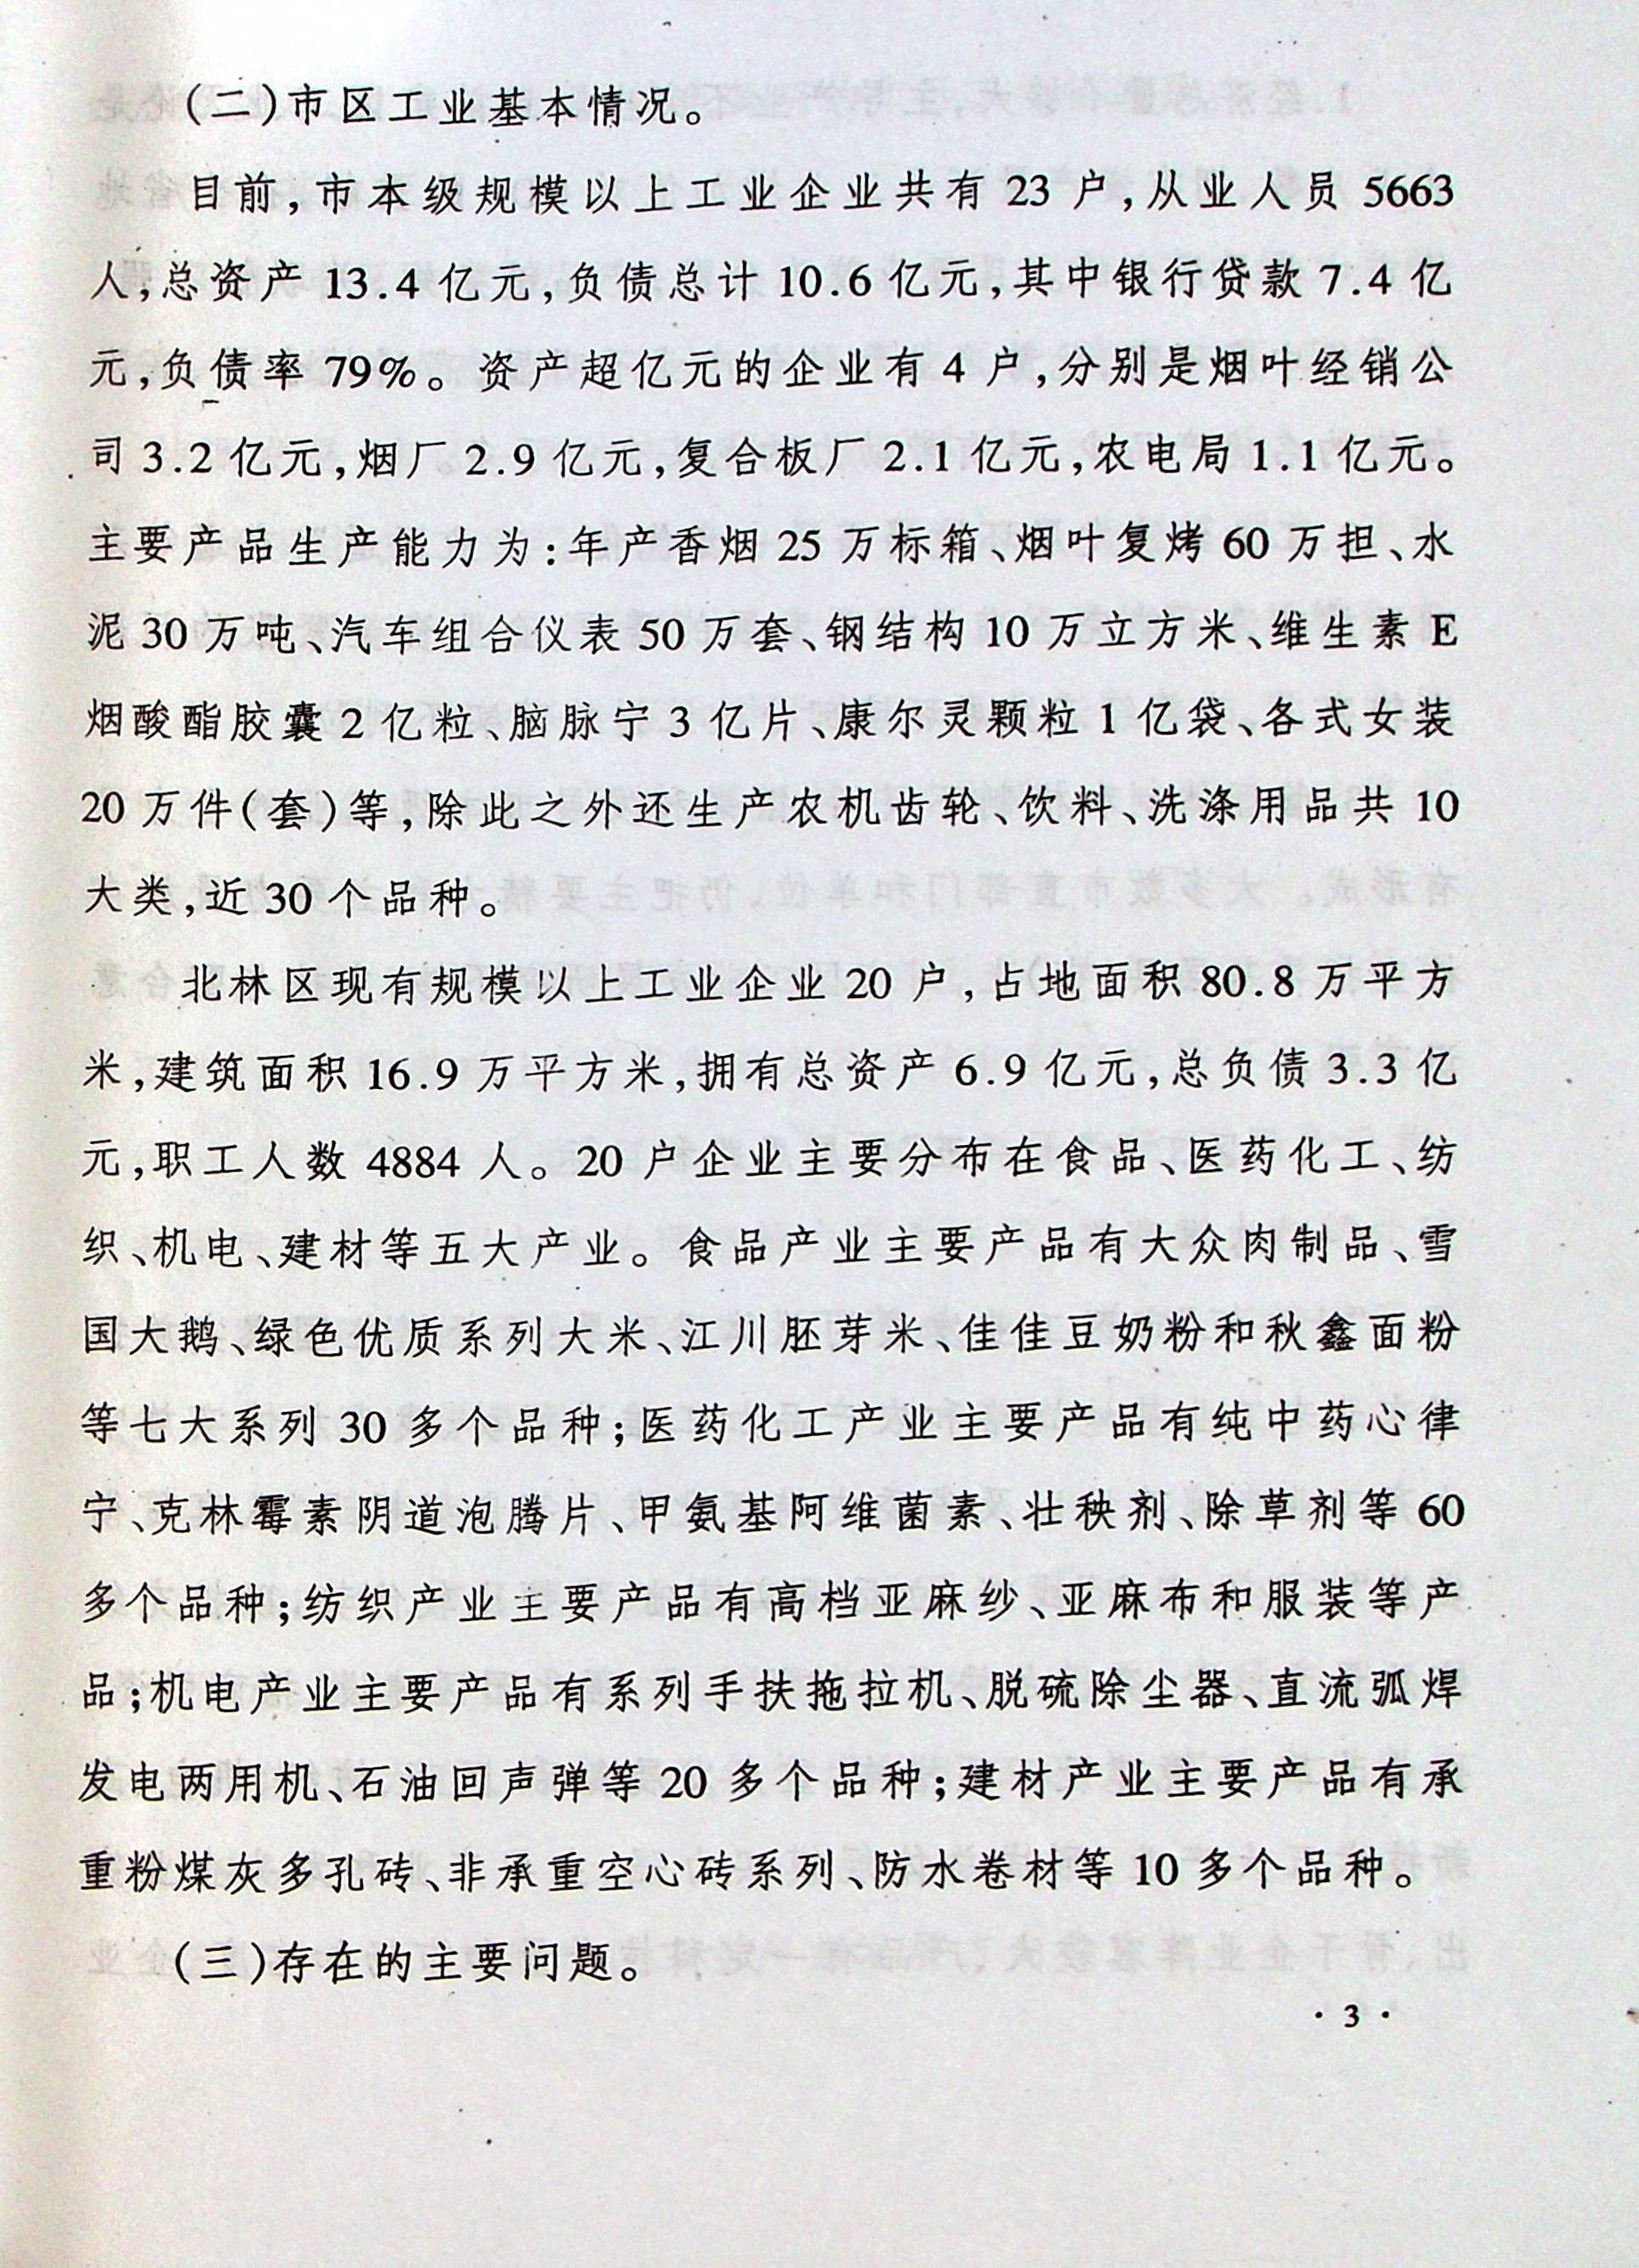 (二)市区工业基本情况。
目前,市本级规模以上工业企业共有 23 户,从业人员 5663
人,总资产 13.4 亿元,负债总计 10.6 亿元,其中银行贷款 7.4 亿
元,负债率 79%。资产超亿元的企业有 4 户,分别是烟叶经销公
司 3.2 亿元,烟厂 2.9 亿元,复合板厂 2.1 亿元,农电局 1.1 亿元。
主要产品生产能力为:年产香烟 25 万标箱、烟叶复烤 60 万担、水
泥 30 万吨、汽车组合仪表 50 万套、钢结构 10 万立方米、维生素 E
烟酸酯胶囊 2 亿粒、脑脉宁 3 亿片、康尔灵颗粒 1 亿袋、各式女装
20 万件(套)等,除此之外还生产农机齿轮、饮料、洗涤用品共 10
大类,近 30 个品种。
北林区现有规模以上工业企业 20 户,占地面积 80.8 万平方
米,建筑面积 16.9 万平方米,拥有总资产 6.9 亿元,总负债 3.3 亿
元,职工人数 4884 人。20 户企业主要分布在食品、医药化工、纺
织、机电、建材等五大产业。食品产业主要产品有大众肉制品、雪
国大鹅、绿色优质系列大米、江川胚芽米、佳佳豆奶粉和秋鑫面粉
等七大系列 30 多个品种;医药化工产业主要产品有纯中药心律
宁、克林霉素阴道泡腾片、甲氨基阿维菌素、壮秧剂、除草剂等 60
多个品种;纺织产业主要产品有高档亚麻纱、亚麻布和服装等产
品;机电产业主要产品有系列手扶拖拉机、脱硫除尘器、直流弧焊
发电两用机、石油回声弹等 20 多个品种;建材产业主要产品有承
重粉煤灰多孔砖、非承重空心砖系列、防水卷材等 10 多个品种。
(三)存在的主要问题。
· 3 ·